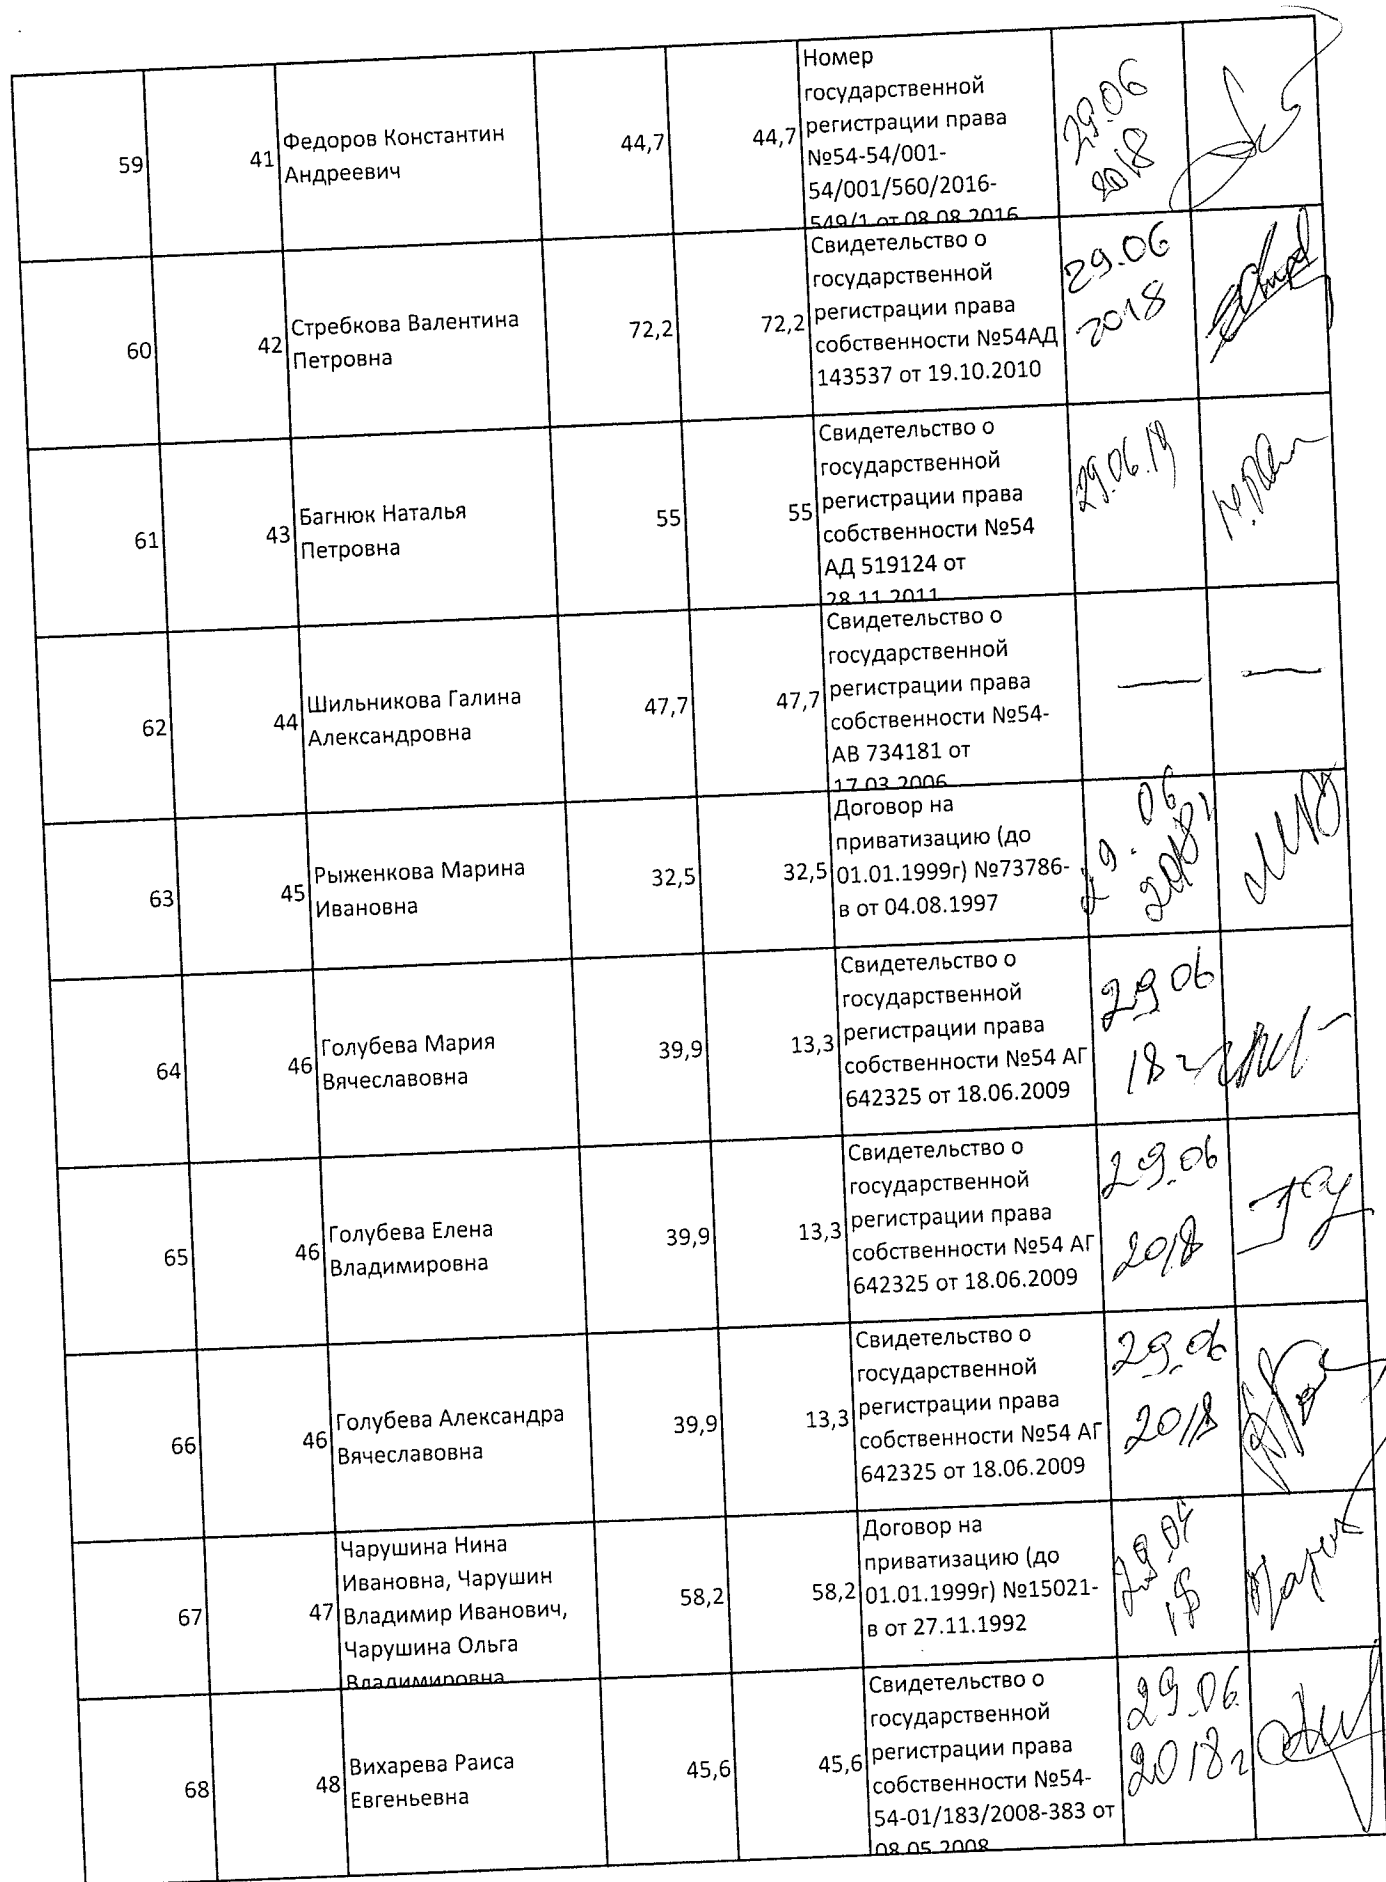 59
41
Федоров Константин
Андреевич
44,7
44,7
Номер
государственной
регистрации права
№54-54/001-
54/001/560/2016-
549/1 от 08.08.2016
29.06
2018
60
42
Стребкова Валентина
Петровна
72,2
72,2
Свидетельство о
государственной
регистрации права
собственности №54АД
143537 от 19.10.2010
29.06
2018
61
43
Багнюк Наталья
Петровна
55
55
Свидетельство о
государственной
регистрации права
собственности №54
АД 519124 от
28.11.2011
62
44
Шильникова Галина
Александровна
47,7
47,7
Свидетельство о
государственной
регистрации права
собственности №54-
АВ 734181 от
17.03.2006
63
45
Рыженкова Марина
Ивановна
32,5
32,5
Договор на
приватизацию (до
01.01.1999г) №73786-
в от 04.08.1997
29.06
2018г
64
46
Голубева Мария
Вячеславовна
39,9
13,3
Свидетельство о
государственной
регистрации права
собственности №54 АГ
642325 от 18.06.2009
29 06
18 г
65
46
Голубева Елена
Владимировна
39,9
13,3
Свидетельство о
государственной
регистрации права
собственности №54 АГ
642325 от 18.06.2009
29.06
2018
66
46
Голубева Александра
Вячеславовна
39,9
13,3
Свидетельство о
государственной
регистрации права
собственности №54 АГ
642325 от 18.06.2009
29.06
2018
67
47
Чарушина Нина
Ивановна, Чарушин
Владимир Иванович,
Чарушина Ольга
Владимировна
58,2
58,2
Договор на
приватизацию (до
01.01.1999г) №15021-
в от 27.11.1992
18
68
48
Вихарева Раиса
Евгеньевна
45,6
45,6
Свидетельство о
государственной
регистрации права
собственности №54-
54-01/183/2008-383 от
08.05.2008
29.06.
2018г